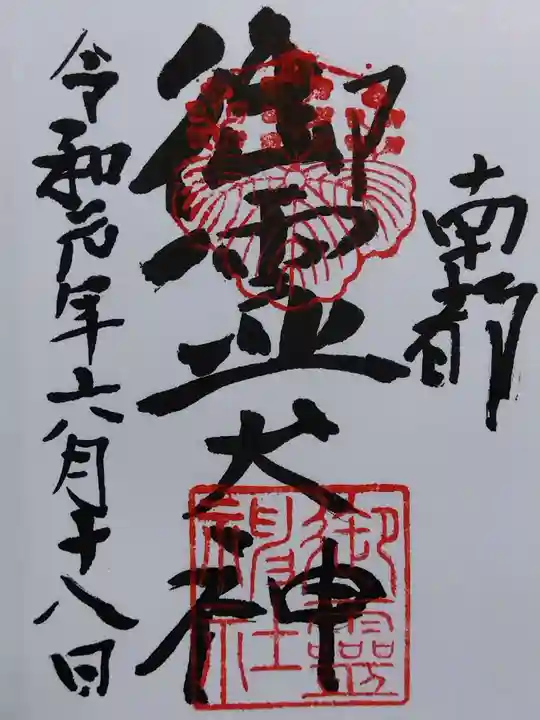 南都
御霊大神
御靈神社
令和元年六月十八日